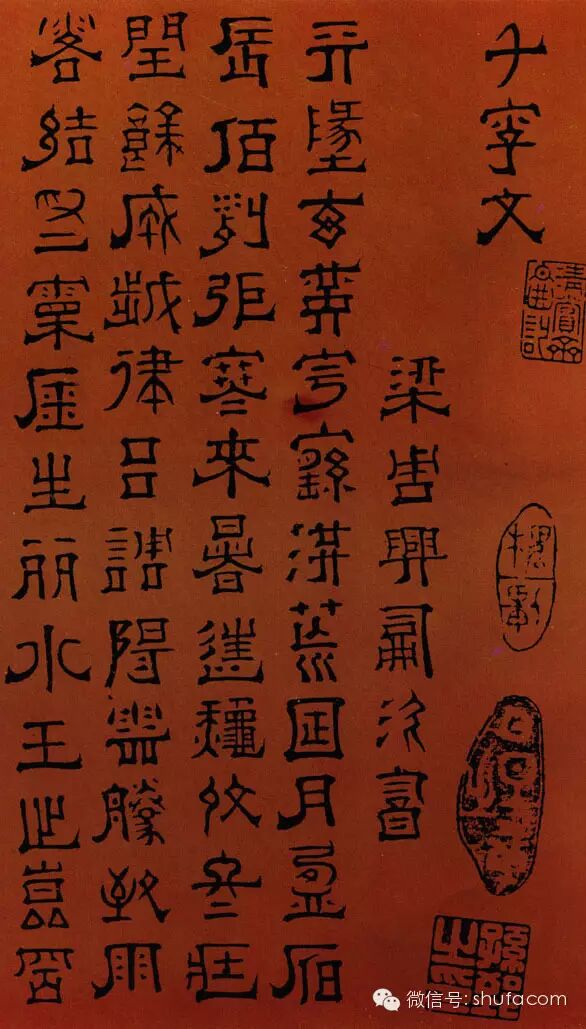 千字文
梁周興嗣次韻
天墬玄黃宇宙洪荒日月盈昃
辰宿列張寒來暑往秋收冬藏
閏餘成歲律呂調陽雲騰致雨
露結為霜金生丽水玉出崑岡
微信号: shufacom